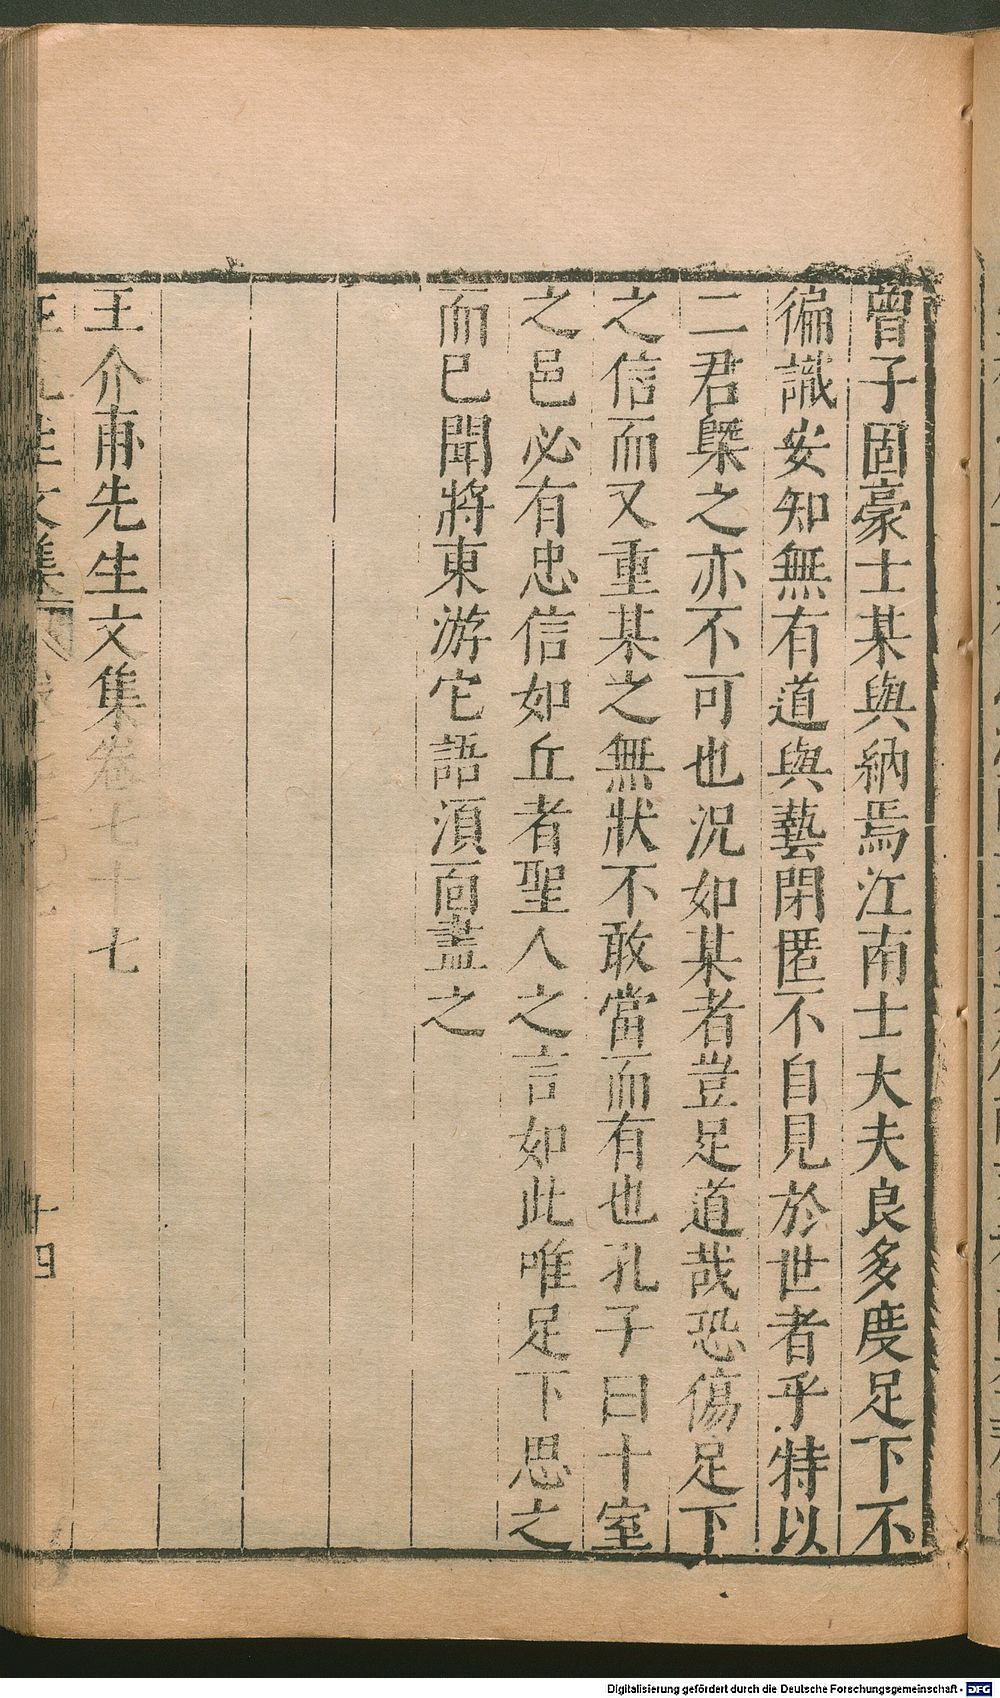 曾子固豪士某與納焉江南士大夫良多度足下不
徧識安知無有道與藝閉匿不自見於世者乎特以
二君槩之亦不可也況如某者豈足道哉恐傷足下
之信而又重某之無狀不敢當而有也孔子曰十室
之邑必有忠信如丘者聖人之言如此唯足下思之
而已聞將東游它語須面盡之
王介甫先生文集卷七十七
文集
十四
Digitalisierung gefördert durch die Deutsche Forschungsgemeinschaft - DFG